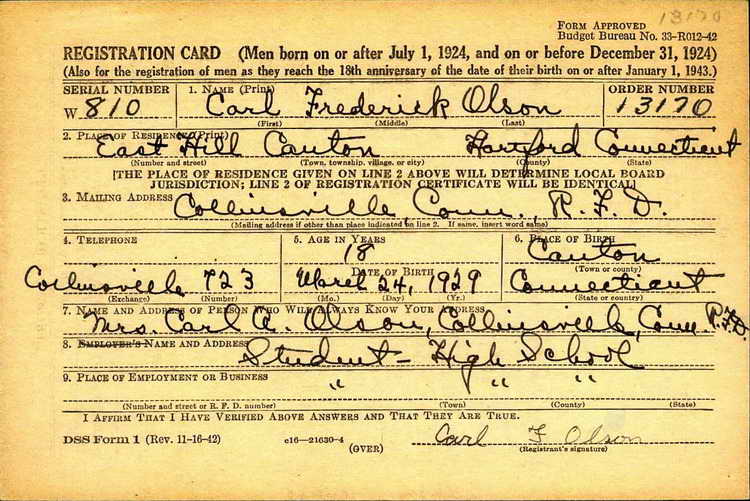 13170
Form Approved
Budget Bureau No. 33-R012-42
REGISTRATION CARD (Men born on or after July 1, 1924, and on or before December 31, 1924)
(Also for the registration of men as they reach the 18th anniversary of the date of their birth on or after January 1, 1943.)
SERIAL NUMBER 1. NAME (Print) ORDER NUMBER
W 810 Carl Frederick Olson 13170
(First) (Middle) (Last)
2. PLACE OF RESIDENCE (Print)
East Hill Canton Hartford Connecticut
(Number and street) (Town, township, village, or city) (County) (State)
[THE PLACE OF RESIDENCE GIVEN ON LINE 2 ABOVE WILL DETERMINE LOCAL BOARD
JURISDICTION; LINE 2 OF REGISTRATION CERTIFICATE WILL BE IDENTICAL]
3. MAILING ADDRESS
Collinsville, Conn., R.F.D.
(Mailing address if other than place indicated on line 2. If same, insert word same)
4. TELEPHONE 5. AGE IN YEARS 6. PLACE OF BIRTH
18 Canton
DATE OF BIRTH (Town or county)
Collinsville 723 March 24, 1929 Connecticut
(Exchange) (Number) (Mo.) (Day) (Yr.) (State or country)
7. NAME AND ADDRESS OF PERSON WHO WILL ALWAYS KNOW YOUR ADDRESS
Mrs. Carl A. Olson, Collinsville, Conn R.F.D.
8. EMPLOYER'S NAME AND ADDRESS
Student - High School
9. PLACE OF EMPLOYMENT OR BUSINESS
" " "
(Number and street or R. F. D. number) (Town) (County) (State)
I AFFIRM THAT I HAVE VERIFIED ABOVE ANSWERS AND THAT THEY ARE TRUE.
DSS Form 1 (Rev. 11-16-42) c16-21630-4 Carl F Olson
(OVER) (Registrant's signature)